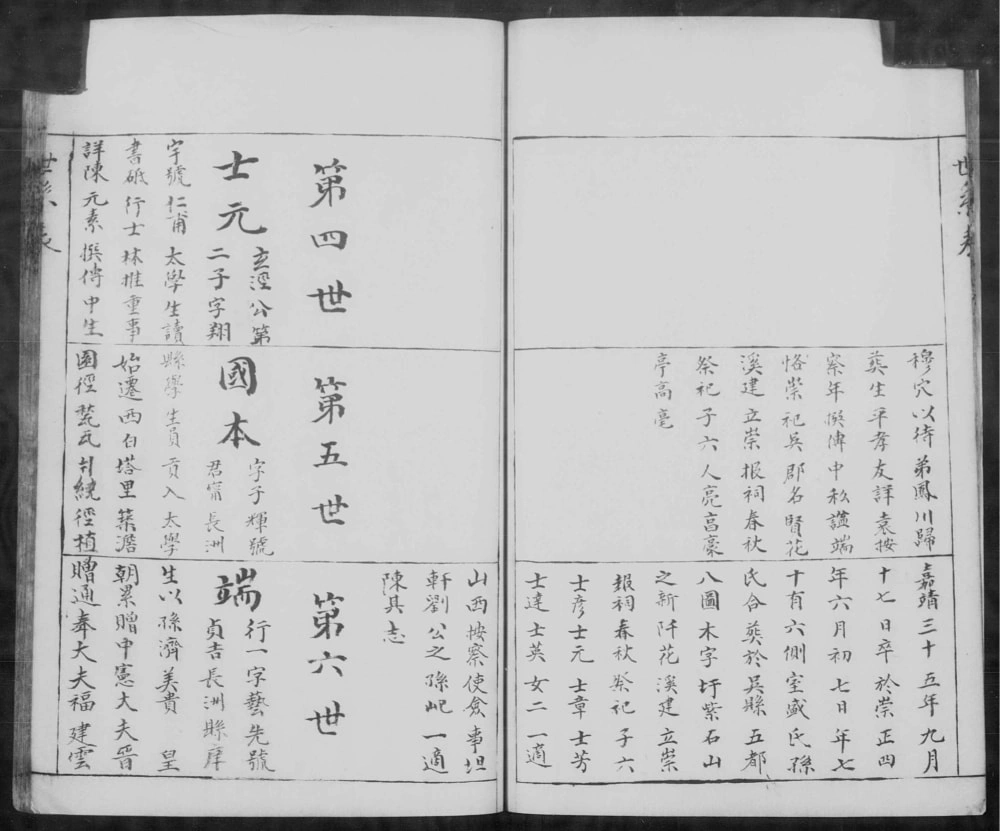 世系表
穆穴以待弟鳳川歸
葬生平孝友詳袁按
察年撰傳中私謚端
恪崇祀吳郡名賢花
溪建立崇报祠春秋
祭祀子六人亮高稾
亭高毫
嘉靖三十五年九月
十七日卒於崇正四
年六月初七日年七
十有六側室盛氏孫
氏合葬於吳縣五都
八圖木字圩紫石山
之新阡花溪建立崇
報祠春秋祭祀子六
士彥士元士章士芳
士達士英女二一適
山西按察使僉事坦
軒劉公之孫屺一適
陳其志
第四世
士元
玄涇公第
二子字翔
字號仁甫太學生讀
書砥行士林推重事
詳陳元素撰傳中生
第五世
國本
字子輝號
君甯長洲
縣學生員貢入太學
始遷西白塔里築澹
園徑甃瓦卦繞徑植
第六世
端
行一字藝先號
貞吉長洲縣庠
生以孫濟美貴 皇
朝累贈中憲大夫晉
贈通奉大夫福建雲
世系表